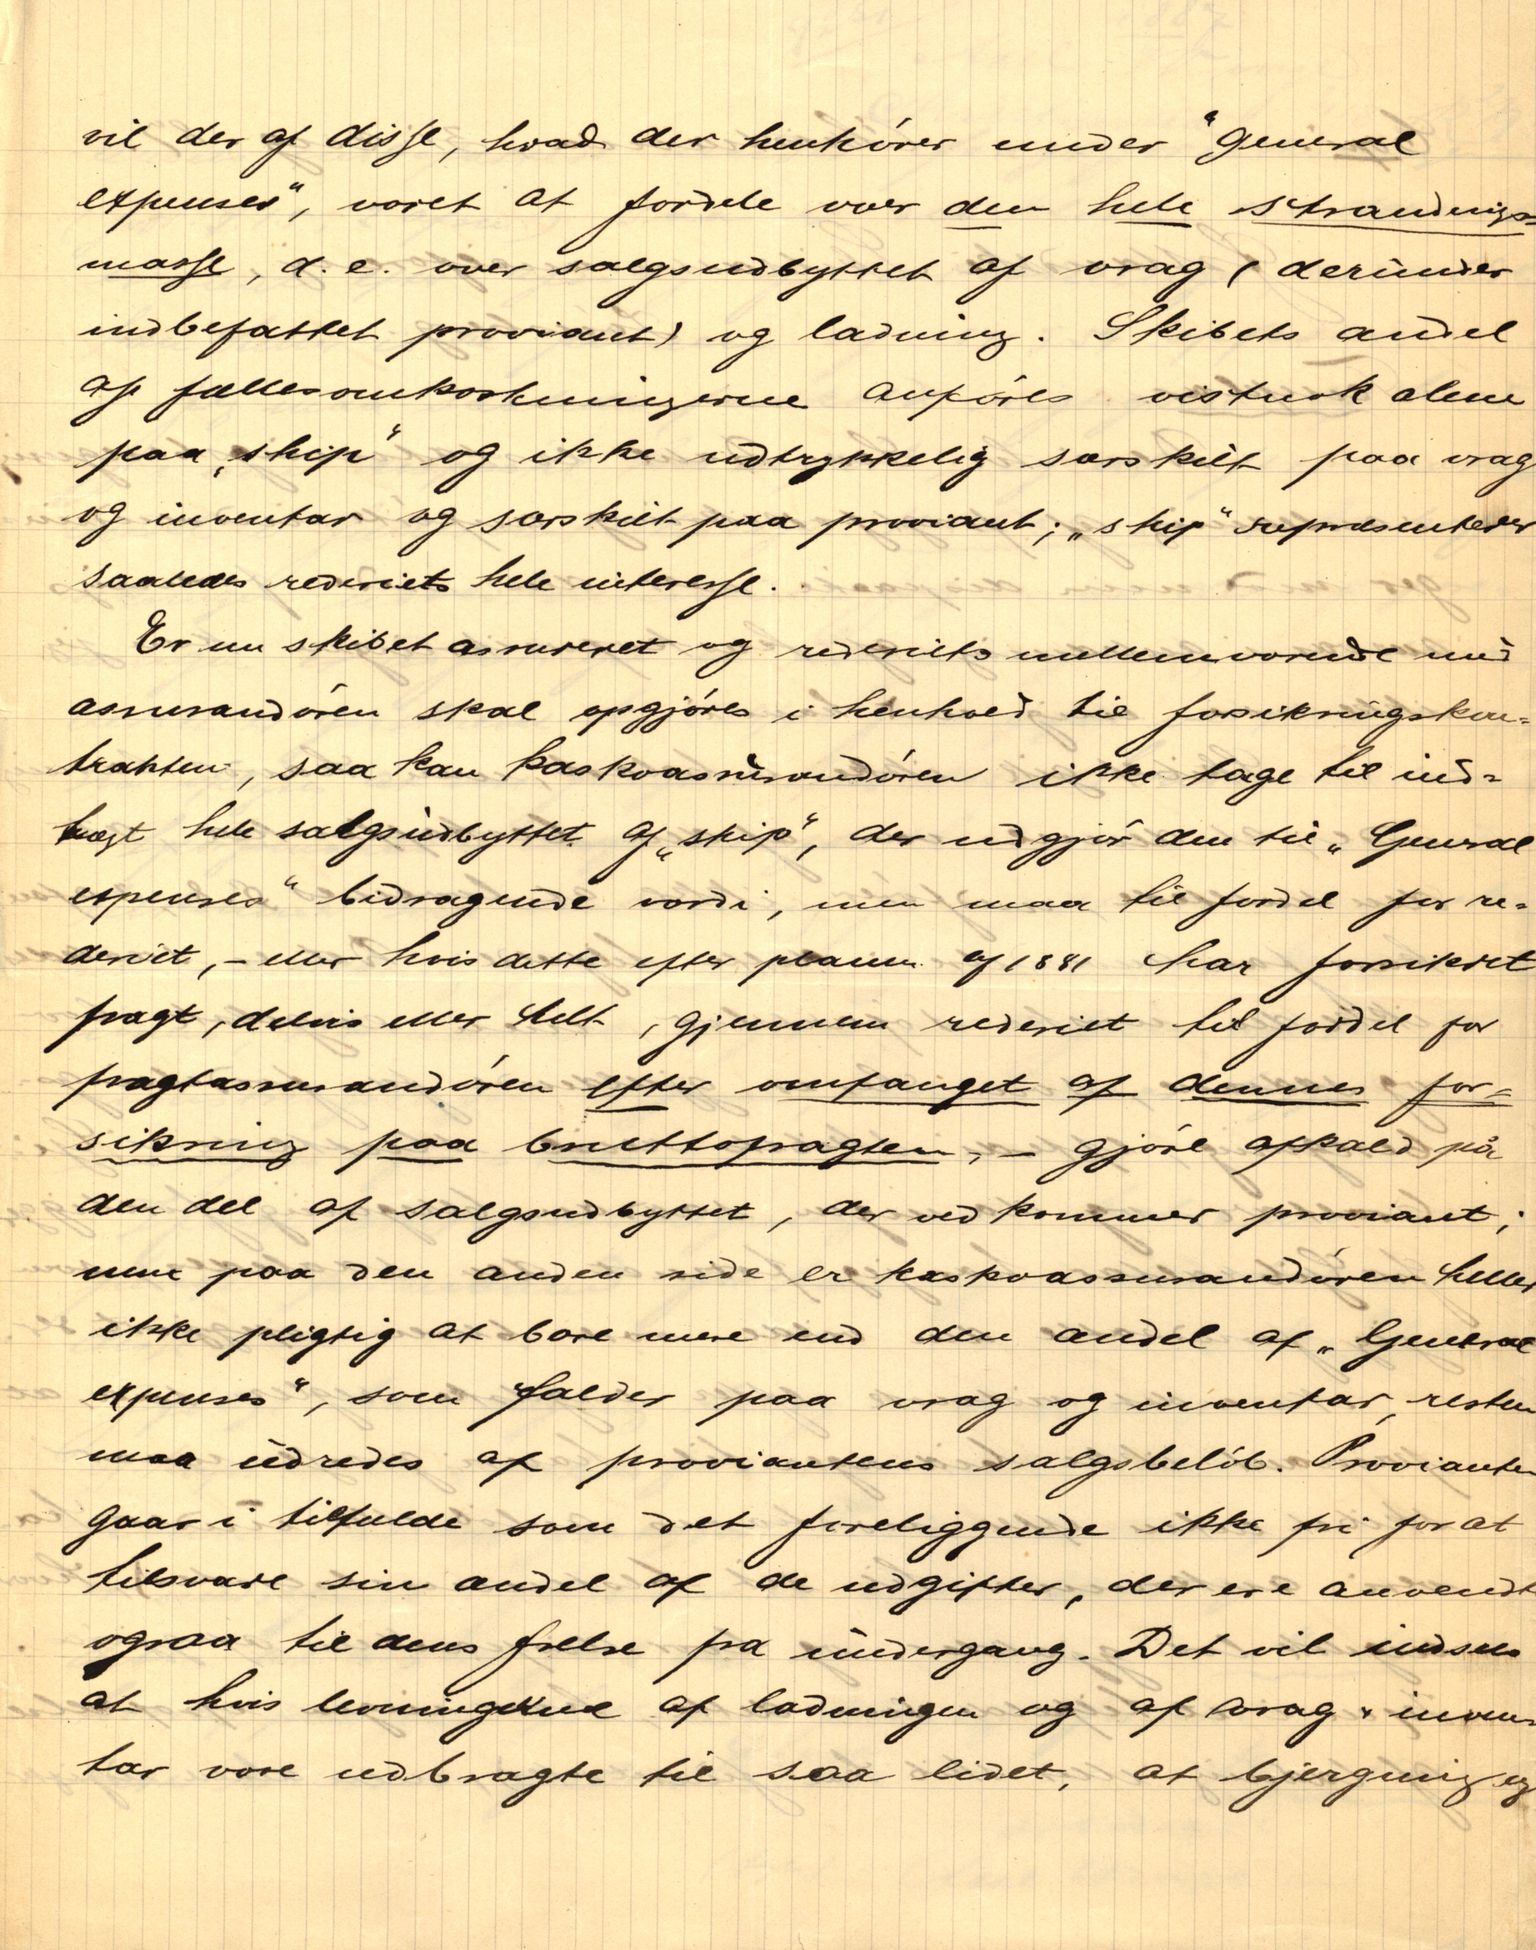 vil der af disse, hvad der henhører under "General
expenses", været at fordele over den hele strandnings-
masse, d. e. over salgsudbyttet af vrag (derunder
indbefattet proviant) og ladning. Skibets andel
af fællesomkostningerne anføres vistnok alene
paa "ship" og ikke udtrykkelig særskilt paa vrag
og inventar og særskilt paa proviant; "ship" repræsenterer
saaledes rederiets hele interesse.
Er nu skibet assureret og rederiets mellemværende med
assurandøren skal opgjøres i henhold til forsikringskon-
trakten, saa kan kaskoassurandøren ikke tage til ind-
tægt hele salgsudbyttet af "ship", der udgjør den til "General
expenses" bidragende værdi, men maa til fordel for re-
deriet, - eller hvis dette efter planen af 1881 har forsikret
fragt, delvis eller helt, gjennem rederiet til fordel for
fragtassurandøren efter omfanget af dennes for-
sikring paa bruttofragten, - gjøre afkald på
den del af salgsudbyttet, der vedkommer proviant;
men paa den anden side er kaskoassurandøren heller
ikke pligtig at bære mere end den andel af "General
expenses", som falder paa vrag og inventar, resten
maa udredes af proviantens salgsbeløb. Provianten
gaar i tilfælde som det foreliggende ikke fri for at
tilsvare sin andel af de udgifter, der ere anvendt
ogsaa til dens frelse fra undergang. Det vil indsees
at hvis levningerne af ladningen og af vrag & inven-
tar vare udbragte til saa lidet, at bjergning og